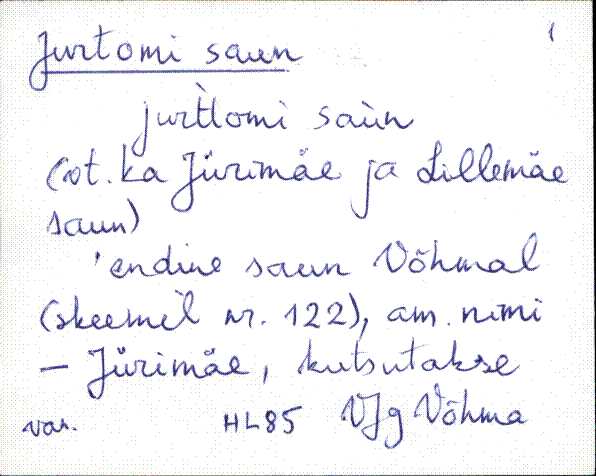 Jurtomi saun 1
jurt̀tomi saùn
(vt. ka Jürimäe ja Lillemäe
saun)
'endine saun Võhmal
(skeemil nr. 122), am. nimi
– Jürimäe, kutsutakse
var. HL85 VJg Võhma